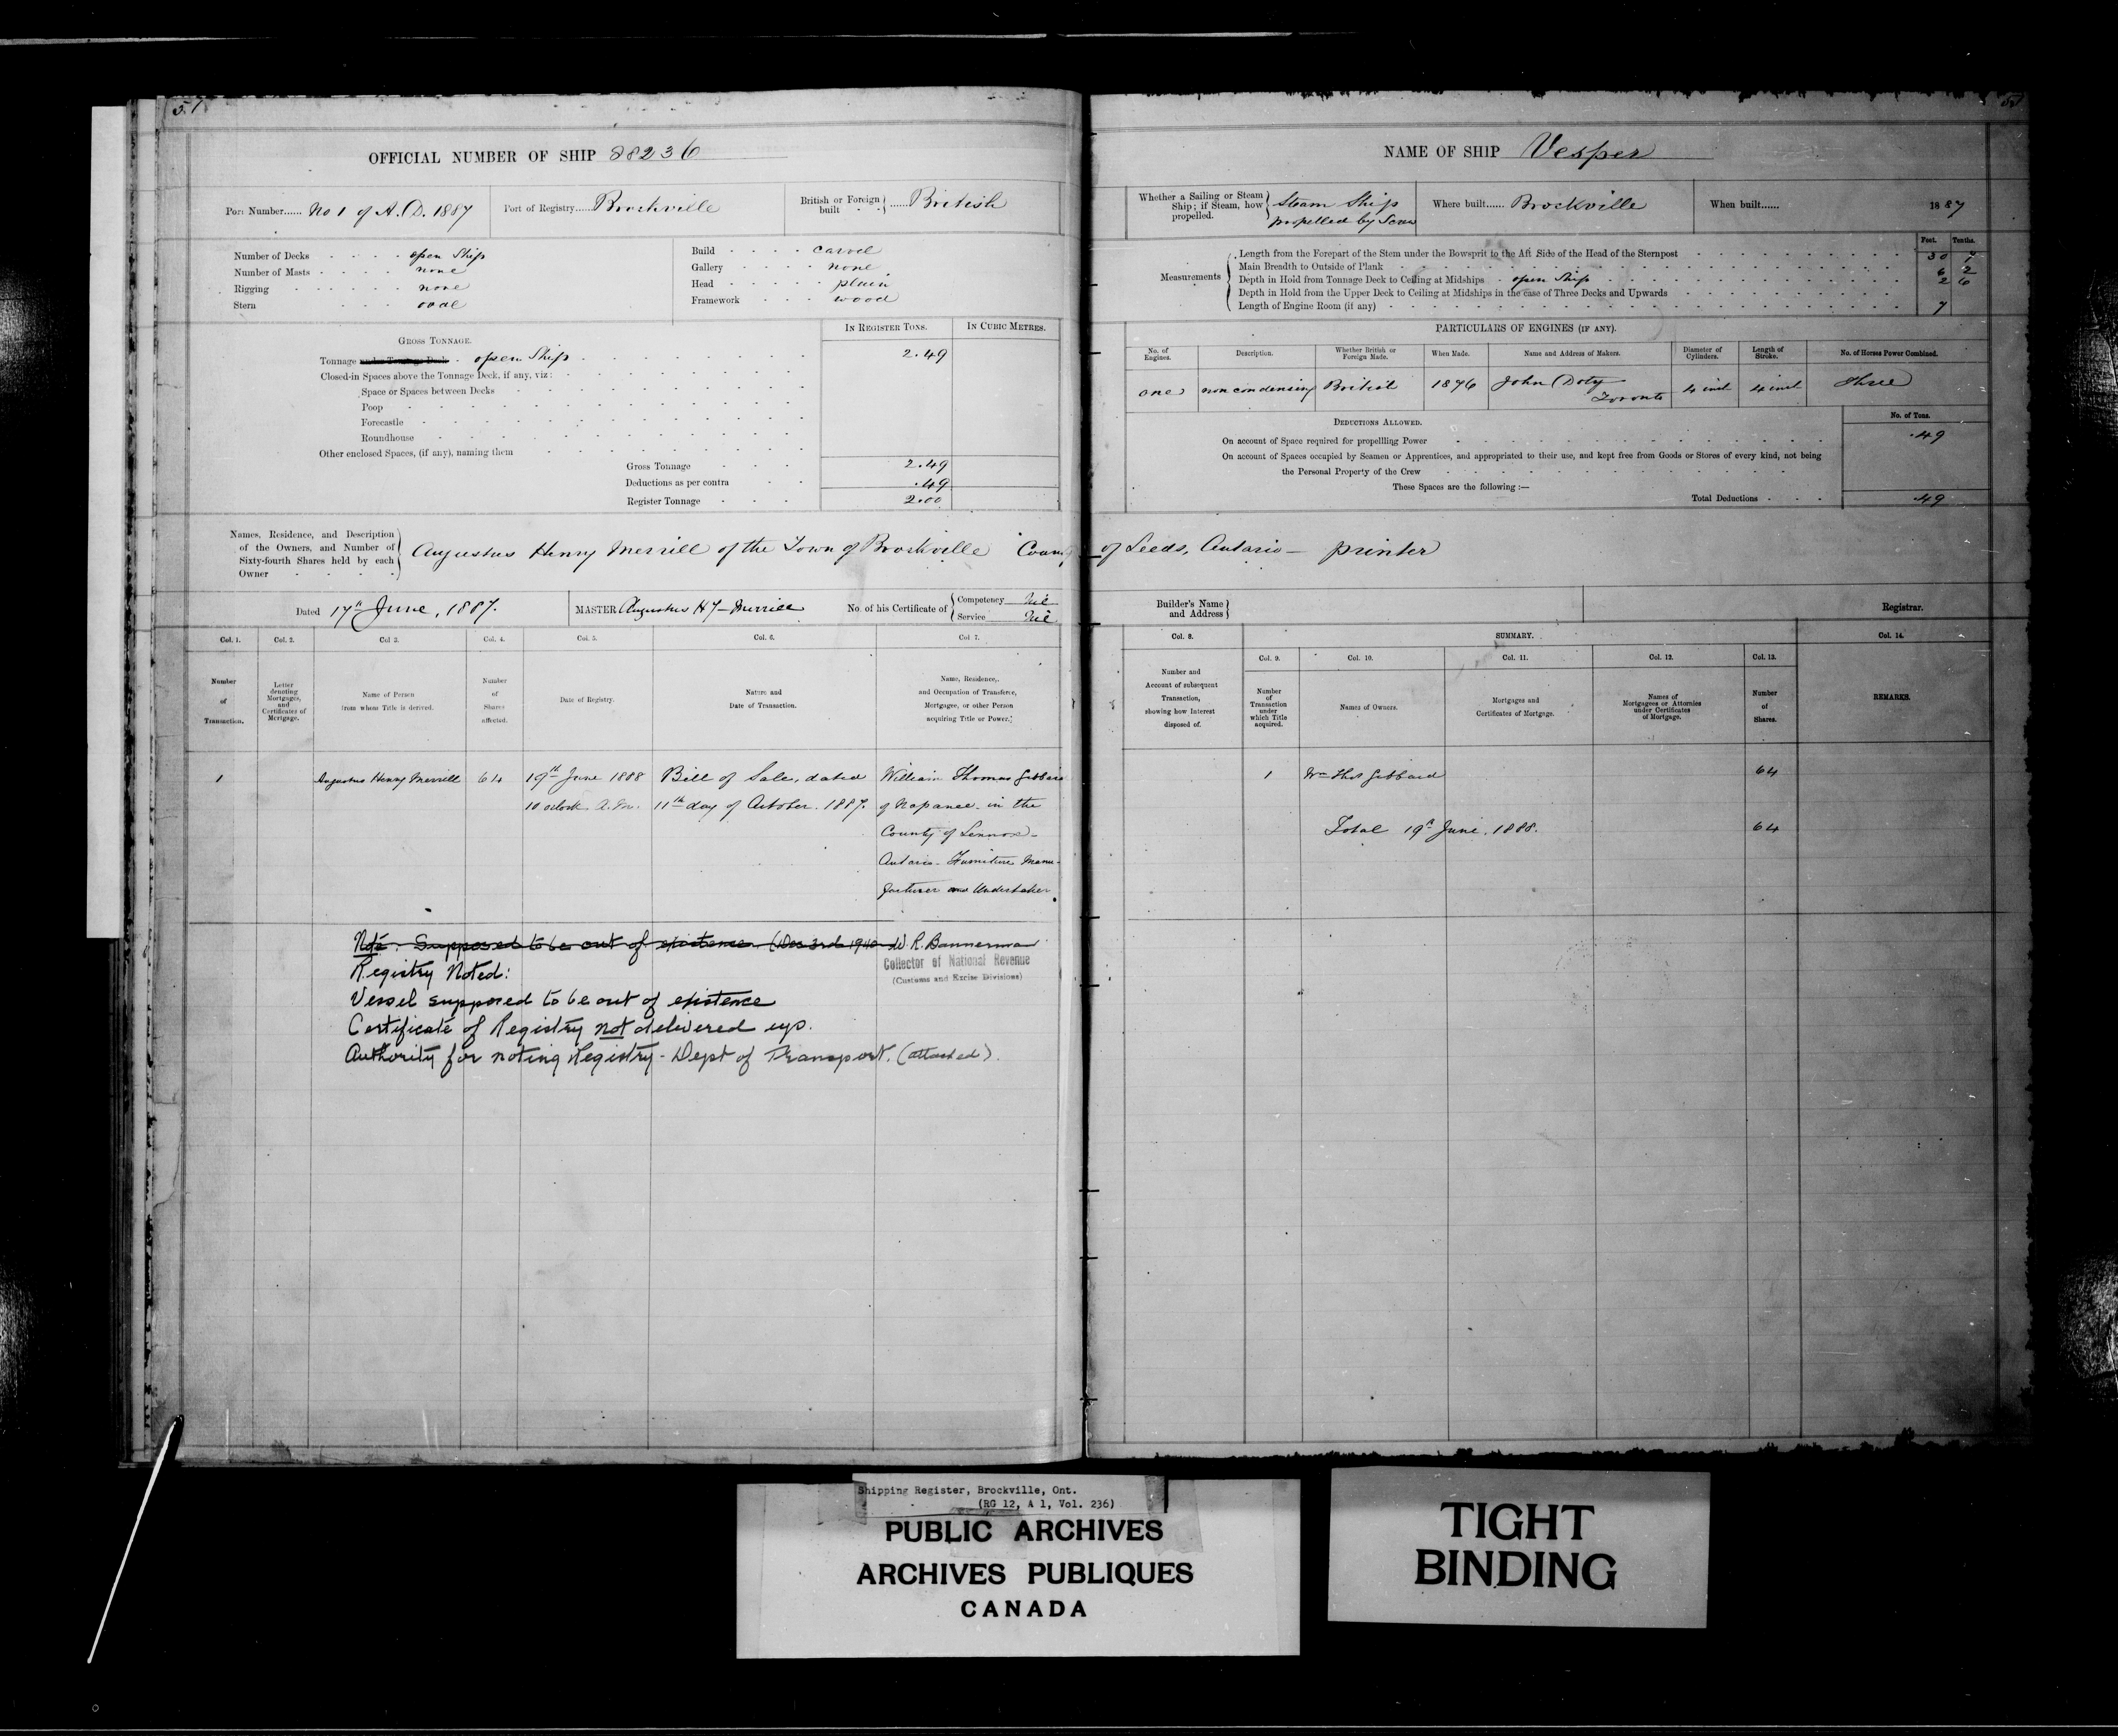 51
OFFICIAL NUMBER OF SHIP 88236
Port Number...... No 1 of A.D. 1887
Port of Registry..... Brockville
British or Foreign built ...... British
Number of Decks open Ship
Number of Masts none
Rigging none
Stern oval
Build carvel
Gallery none
Head plain
Framework wood
GROSS TONNAGE.
IN REGISTER TONS.
IN CUBIC METRES.
Tonnage under Tonnage Deck open Ship 2.49
Closed-in Spaces above the Tonnage Deck, if any, viz:
Space or Spaces between Decks
Poop
Forecastle
Roundhouse
Other enclosed Spaces, (if any), naming them
Gross Tonnage 2.49
Deductions as per contra .49
Register Tonnage 2.00
Names, Residence, and Description
of the Owners, and Number of
Sixty-fourth Shares held by each
Owner
Augustus Henry Merrill of the Town of Brockville County of Leeds, Ontario — printer
Dated 17th June, 1887.
MASTER Augustus Hy Merrill
No. of his Certificate of
Competency Nil
Service Nil
Col. 1.
Number
of
Transaction.
Col. 2.
Letter
denoting
Mortgages,
and
Certificates of
Mortgage.
Col 3.
Name of Person
from whom Title is derived.
Col. 4.
Number
of
Shares
affected.
Col. 5.
Date of Registry.
Col. 6.
Nature and
Date of Transaction.
Col 7.
Name, Residence,
and Occupation of Transferee,
Mortgagee, or other Person
acquiring Title or Power.
1
Augustus Henry Merrill
64
19th June 1888
10 oclock. A.M.
Bill of Sale, dated
11th day of October. 1887.
William Thomas Gibbard
of Napanee in the
County of Lennox
Ontario. Furniture Manu-
facturer and Undertaker.
Note: Supposed to be out of existence (Dec 3rd 1940 W.R. Bannerman
Collector of National Revenue
(Customs and Excise Divisions)
Registry Noted:
Vessel supposed to be out of existence
Certificate of Registry not delivered up.
Authority for noting Registry - Dept of Transport. (attached).
51
NAME OF SHIP Vesper
Whether a Sailing or Steam
Ship; if Steam, how
propelled.
Steam Ship
propelled by Screw
Where built...... Brockville
When built...... 1887
Feet. Tenths.
Measurements
Length from the Forepart of the Stem under the Bowsprit to the Aft Side of the Head of the Sternpost 30
Main Breadth to Outside of Plank 6 2
Depth in Hold from Tonnage Deck to Ceiling at Midships open Ship 2 6
Depth in Hold from the Upper Deck to Ceiling at Midships in the case of Three Decks and Upwards
Length of Engine Room (if any) 7
PARTICULARS OF ENGINES (IF ANY).
No. of
Engines.
Description.
Whether British or
Foreign Made.
When Made.
Name and Address of Makers.
Diameter of
Cylinders.
Length of
Stroke.
No. of Horses Power Combined.
one
non condensing
British
1876
John Doty
Toronto
4 inch
4 inch
three
DEDUCTIONS ALLOWED.
No. of Tons.
On account of Space required for propellling Power .49
On account of Spaces occupied by Seamen or Apprentices, and appropriated to their use, and kept free from Goods or Stores of every kind, not being
the Personal Property of the Crew
These Spaces are the following :—
Total Deductions .49
Builder's Name
and Address
Registrar.
Col. 8.
Number and
Account of subsequent
Transaction,
showing how Interest
disposed of.
SUMMARY.
Col. 9.
Number
of
Transaction
under
which Title
acquired.
Col. 10.
Names of Owners.
Col. 11.
Mortgages and
Certificates of Mortgage.
Col. 12.
Names of
Mortgagees or Attornies
under Certificates
of Mortgage.
Col. 13.
Number
of
Shares.
Col. 14.
REMARKS.
1
Wm Thos Gibbard
64
Total 19th June, 1888.
64
Shipping Register, Brockville, Ont.
(RG 12, A 1, Vol. 236)
PUBLIC ARCHIVES
ARCHIVES PUBLIQUES
CANADA
TIGHT
BINDING